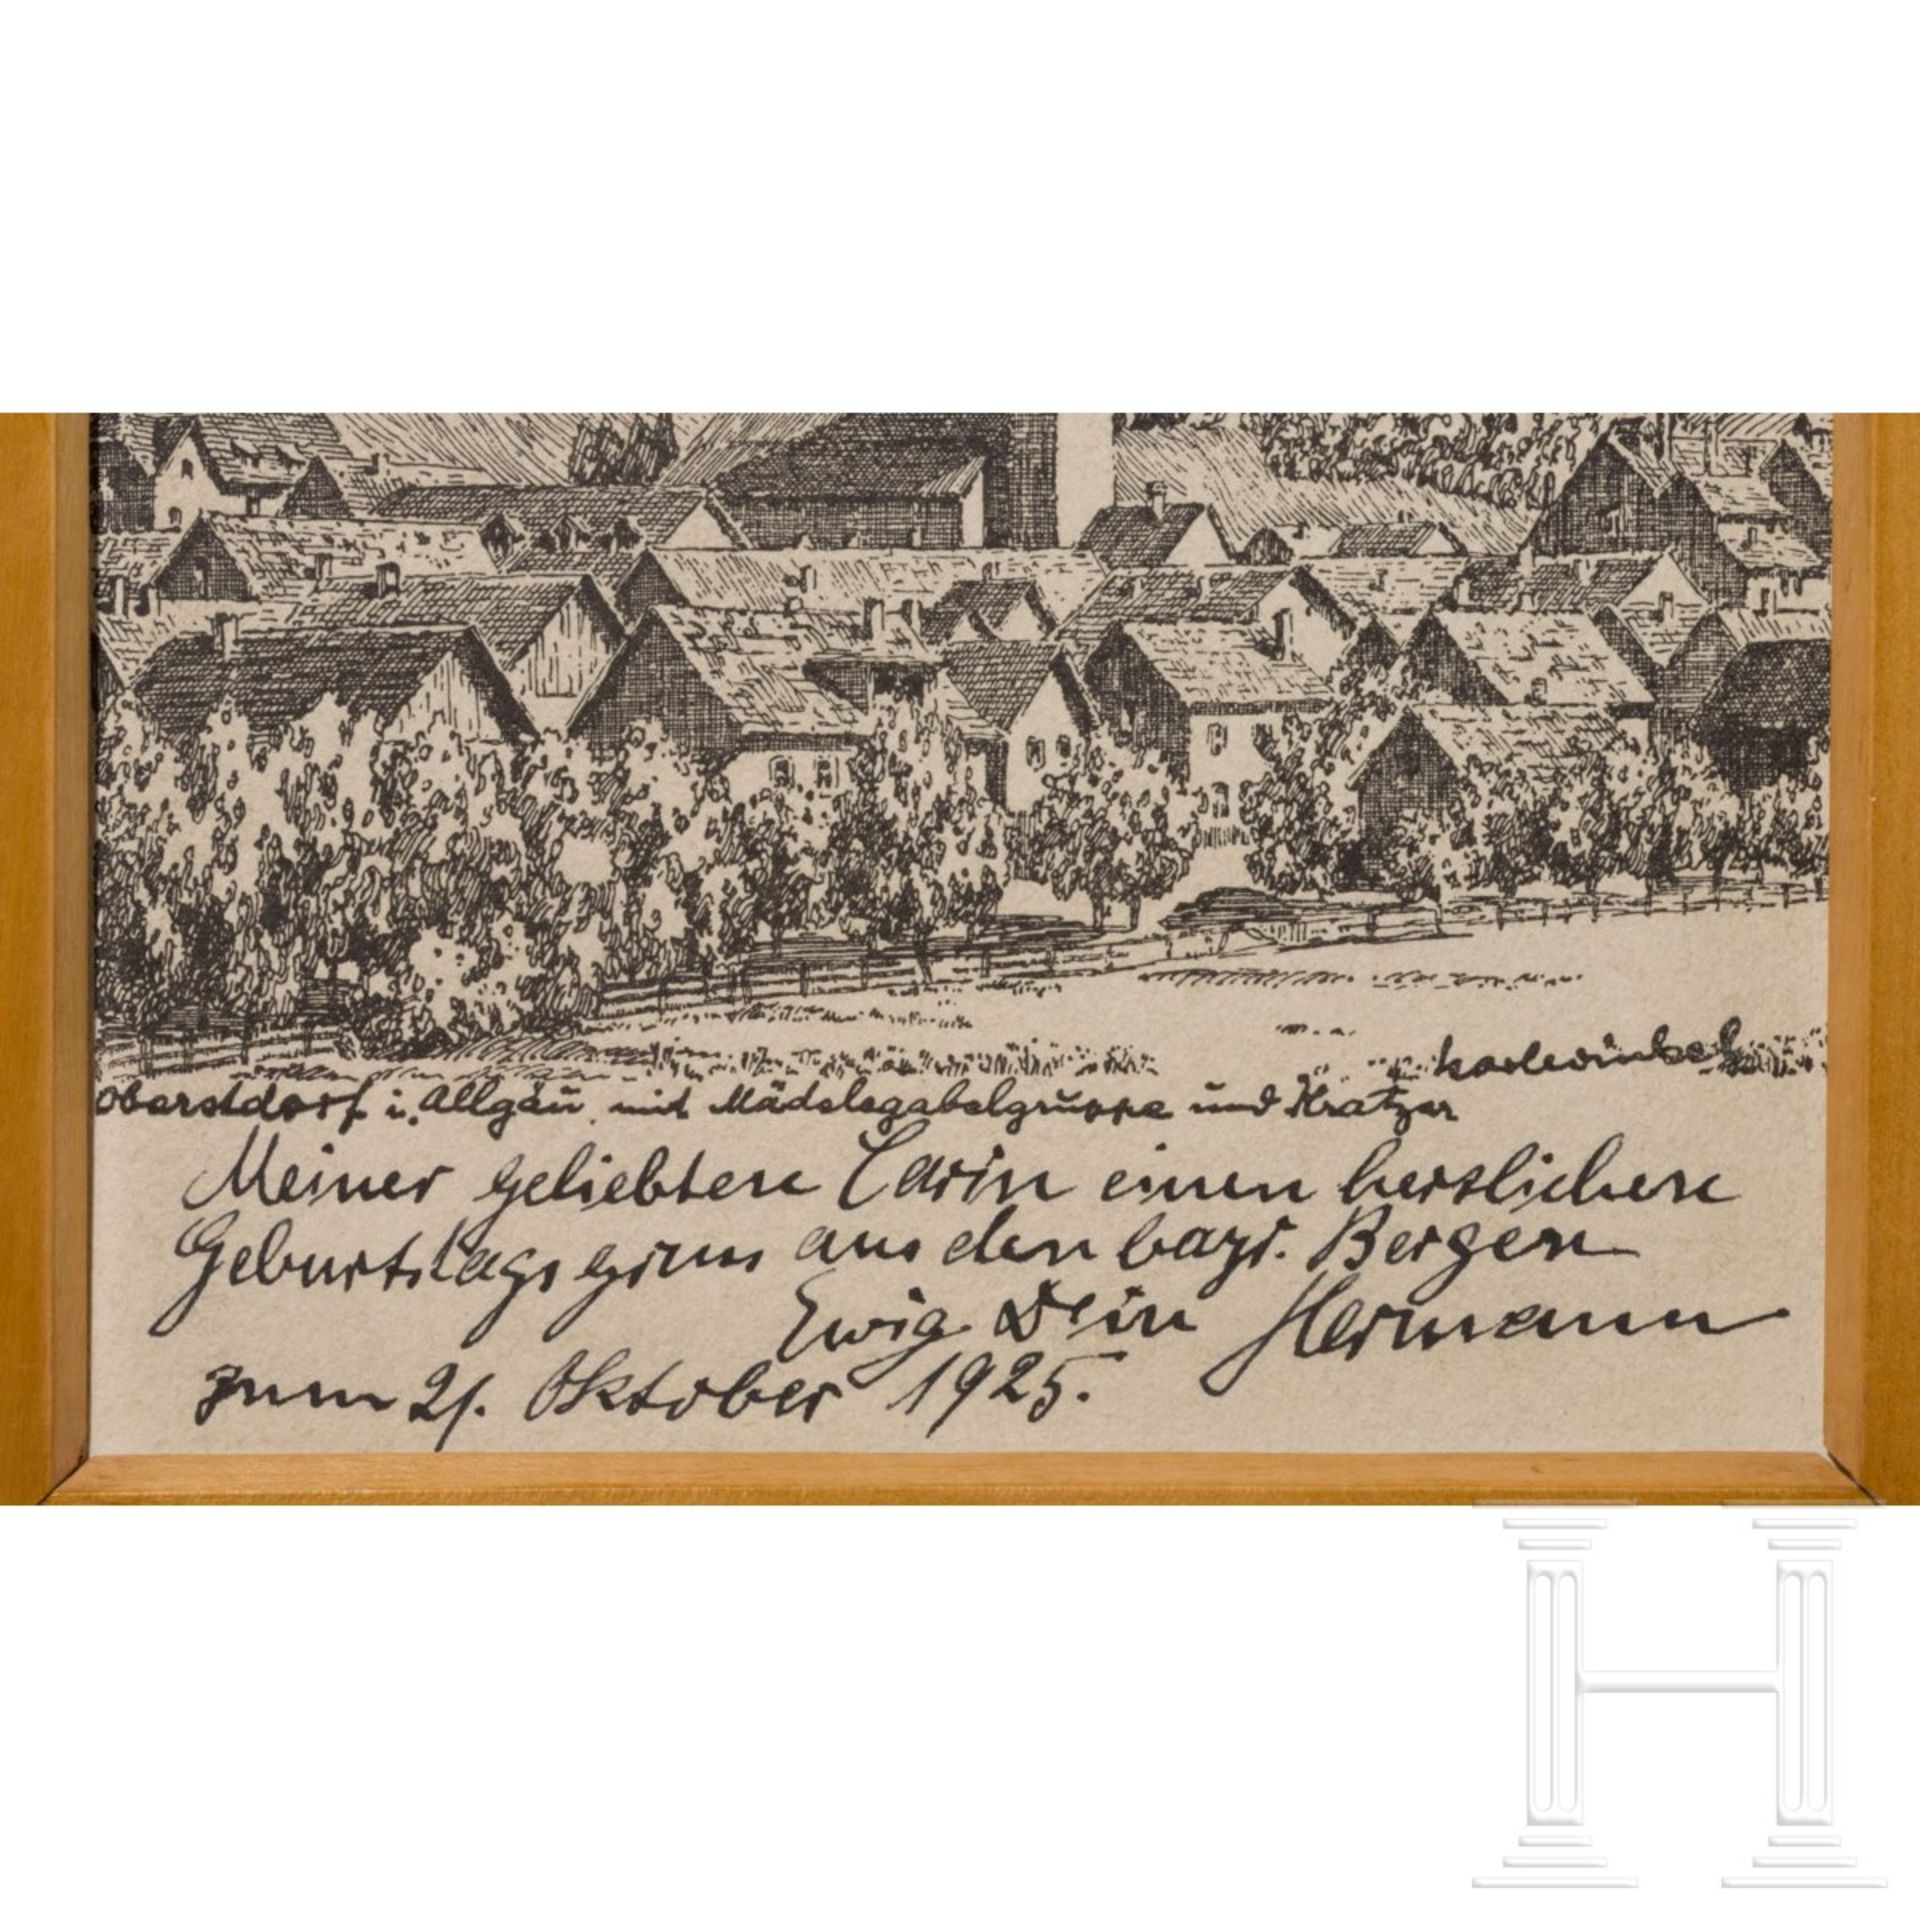 Karl Winkel
Oberstdorf i. Allgäu mit Mädelegabelgruppe und Kratzer
Meiner geliebten Carin einen herzlichen
Geburtstagsgruss aus den bayr. Bergen
Ewig Dein Hermann
zum 21. Oktober 1925.
H